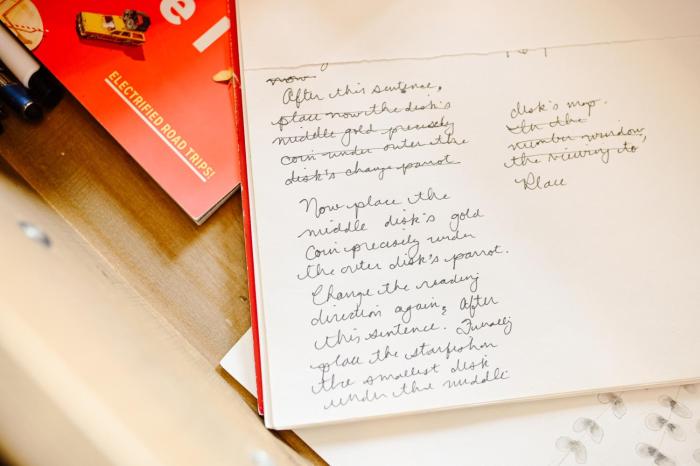 el
ELECTRIFIED ROAD TRIPS!
now
After this sentence,
place now the disk's
middle gold precisely
coin under outer the
disk's change parrot
Now place the
middle disk's gold
coin precisely under
the outer disk's parrot.
Change the reading
direction again, After
this sentence. Finally
place the starfish on
the smallest disk
under the middle
disk's map.
In the
number window,
the viewing to
Place